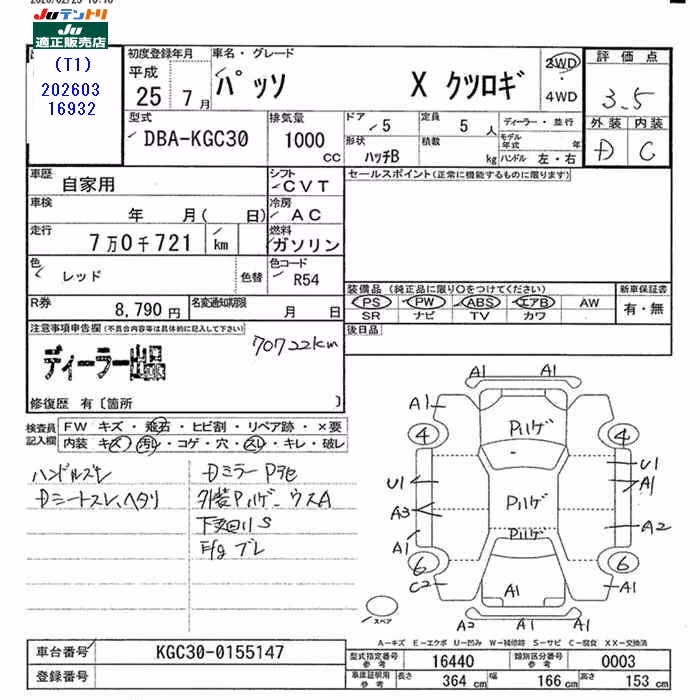 Juテントリ
JU
適正販売店
(T1)
202603
16932
初度登録年月
平成
25 7月
車名・グレード
パッソ X クツロギ
2WD
4WD
評価点
3.5
外装 内装
D C
型式
DBA-KGC30
排気量
1000
CC
ドア 5
形状 ハッチB
定員 5 人
積載 kg
ディーラー・並行
モデル年式 年
ハンドル 左・右
車歴
自家用
シフト
CVT
車検
年 月( 日)
冷房
AC
走行
7万0千721 km
燃料
ガソリン
色
レッド
色替
色コード
R54
R券
8,790円
名変通知期限
月 日
セールスポイント(正常に機能するものに限ります)
装備品(純正品に限り○をつけてください)
PS PW ABS エアB AW
SR ナビ TV カワ
新車保証書
有・無
後日品
注意事項申告欄(不具合内容等は具体的に記入して下さい)
ディーラー出品
70722km
修復歴 有〔箇所 〕
検査員
記入欄
FW キズ・飛石・ヒビ割・リペア跡・×要
内装 キズ・汚レ・コゲ・穴・スレ・キレ・破レ
ハンドルスレ
Dシートスレ、ヘタリ
Dミラー
外装Pハゲ、ウスA
下回りS
A1 A1
A1
4 4
Pハゲ
U1 U1
A1
Pハゲ
A3
A2
A1
Pハゲ
6 6
C2 A1 A1
スペア
A2 A1 A1
A-キズ E-エクボ U-凹み W-補修跡 S-サビ C-腐食 XX-交換済
車台番号
KGC30-0155147
登録番号
型式指定番号
参考
16440
類別区分番号
参考
0003
車庫証明用
参考
長さ 364 cm
幅 166 cm
高さ 153 cm